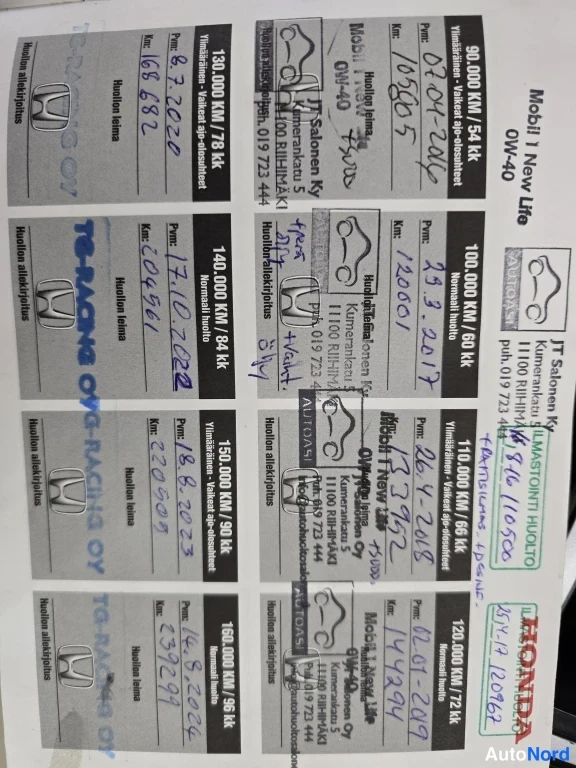 HONDA
Mobil 1 New Life
0W-40
JT Salonen Ky
Kumerankatu 5
11100 RIIHIMÄKI
puh. 019 723 4
AUTOASI
ILMASTOINTI HUOLTO
110500
25.4.17 120967
90.000 KM / 54 kk
Ylimääräinen - Vaikeat ajo-olosuhteet
Pvm: 07.01-2016
Km: 105605
Huollon leima
Mobil 1 New Life
0W-40
JT Salonen Ky
Kumerankatu 5
11100 RIIHIMÄKI
puh. 019 723 444
100.000 KM / 60 kk
Normaali huolto
Pvm: 29.3.2017
Km: 120001
Huollon leima
JT Salonen Ky
Kumerankatu 5
11100 RIIHIMÄKI
puh. 019 723 4
AUTOASI
Huollon allekirjoitus
+ Vaiht.
öljy
110.000 KM / 66 kk
Ylimääräinen - Vaikeat ajo-olosuhteet
Pvm: 26.4-2018
Km: 133952
Mobil 1 New Life
0W-40
Huollon leima
JT Salonen Oy
Kumerankatu 5
11100 RIIHIMÄKI
Puh. 019 723 444
AUTOASI
120.000 KM / 72 kk
Normaali huolto
Pvm: 02.01-2019
Km: 144294
Mobil 1 New Life
0W-40
JT Salonen Oy
Kumerankatu 5
11100 RIIHIMÄKI
Puh. 019 723 444
AUTOASI
130.000 KM / 78 kk
Ylimääräinen - Vaikeat ajo-olosuhteet
Pvm: 8.7.2020
Km: 168682
Huollon leima
TG-RACING OY
Huollon allekirjoitus
140.000 KM / 84 kk
Normaali huolto
Pvm: 17.10.2022
Km: 204561
Huollon leima
TG-RACING OY
Huollon allekirjoitus
150.000 KM / 90 kk
Ylimääräinen - Vaikeat ajo-olosuhteet
Pvm: 18.8.2023
Km: 220509
Huollon leima
TG-RACING OY
Huollon allekirjoitus
160.000 KM / 96 kk
Normaali huolto
Pvm: 14.8.2024
Km: 239299
Huollon leima
TG-RACING OY
Huollon allekirjoitus
AutoNord